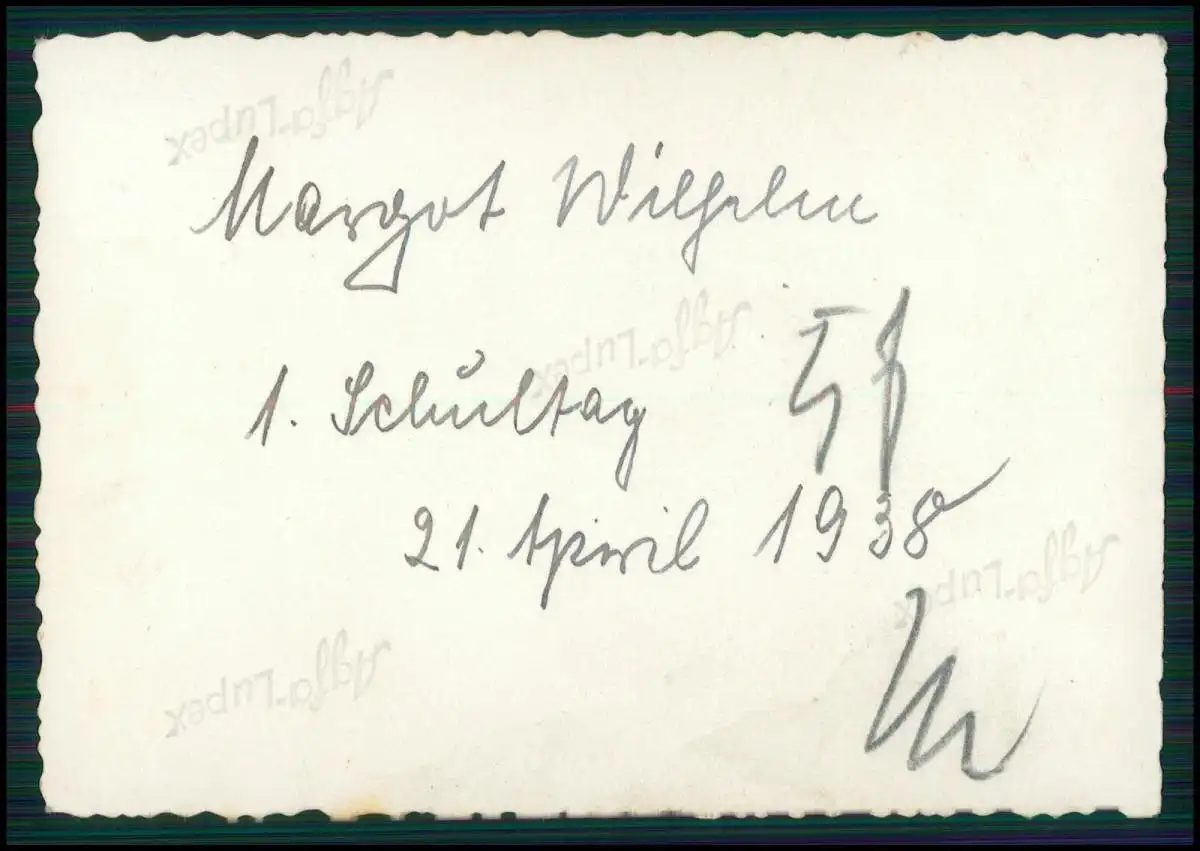 Agfa-Lupex
Margot Wilhelm
Agfa-Lupex
1. Schultag
21. April 1938
Agfa-Lupex
Agfa-Lupex